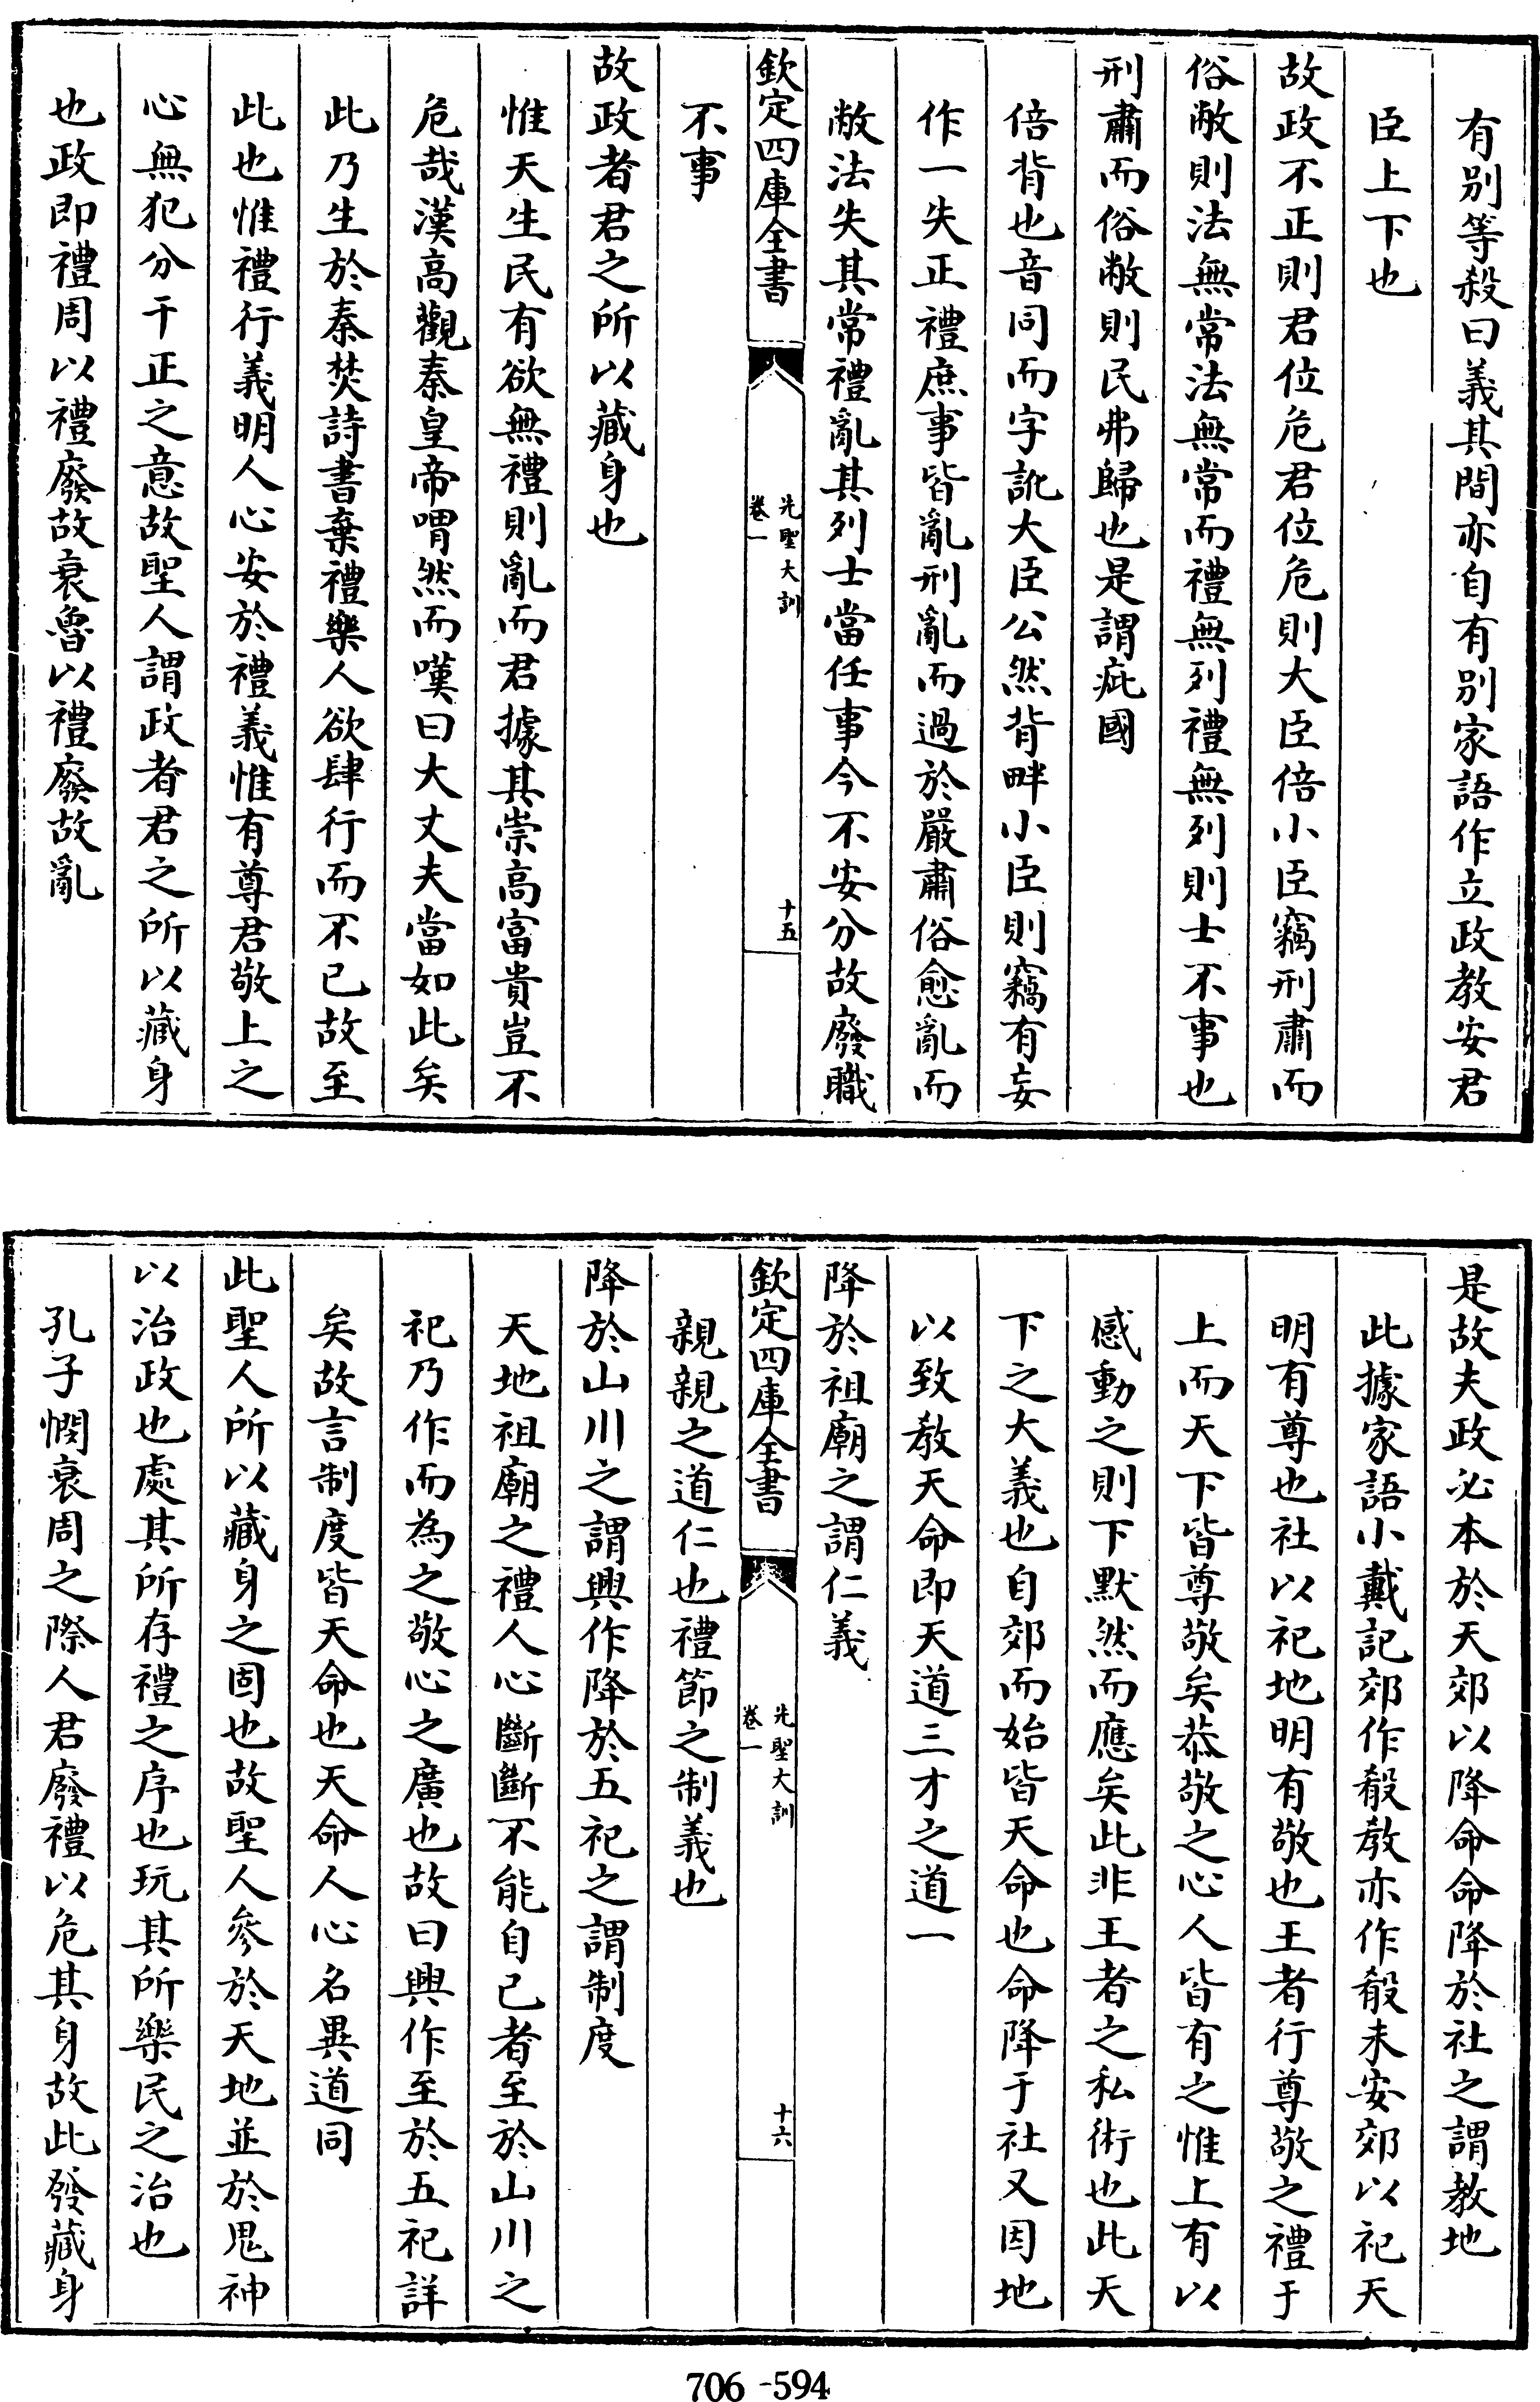 有别等殺曰義其間亦自有别家語作立政教安君
臣上下也
故政不正則君位危君位危則大臣倍小臣竊刑肅而
俗敝則法無常法無常而禮無列禮無列則士不事也
刑肅而俗敝則民弗歸也是謂疵國
倍背也音同而字訛大臣公然背畔小臣則竊有妄
作一失正禮庶事皆亂刑亂而過於嚴肅俗愈亂而
敝法失其常禮亂其列士當任事今不安分故廢職
欽定四庫全書
先聖大訓
卷一
十五
不事
故政者君之所以藏身也
惟天生民有欲無禮則亂而君據其崇高富貴豈不
危哉漢高觀秦皇帝喟然而嘆曰大丈夫當如此矣
此乃生於秦焚詩書棄禮樂人欲肆行而不已故至
此也惟禮行義明人心安於禮義惟有尊君敬上之
心無犯分干正之意故聖人謂政者君之所以藏身
也政即禮周以禮廢故衰魯以禮廢故亂
是故夫政必本於天郊以降命命降於社之謂教地
此據家語小戴記郊作殽教亦作殽未安郊以祀天
明有尊也社以祀地明有敬也王者行尊敬之禮于
上而天下皆尊敬矣恭敬之心人皆有之惟上有以
感動之則下默然而應矣此非王者之私術也此天
下之大義也自郊而始皆天命也命降于社又因地
以致教天命即天道三才之道一
降於祖廟之謂仁義
欽定四庫全書
先聖大訓
卷一
十六
親親之道仁也禮節之制義也
降於山川之謂興作降於五祀之謂制度
天地祖廟之禮人心斷斷不能自已者至於山川之
祀乃作而為之敬心之廣也故曰興作至於五祀詳
矣故言制度皆天命也天命人心名異道同
此聖人所以藏身之固也故聖人參於天地並於鬼神
以治政也處其所存禮之序也玩其所樂民之治也
孔子憫衰周之際人君廢禮以危其身故此發藏身
706-594